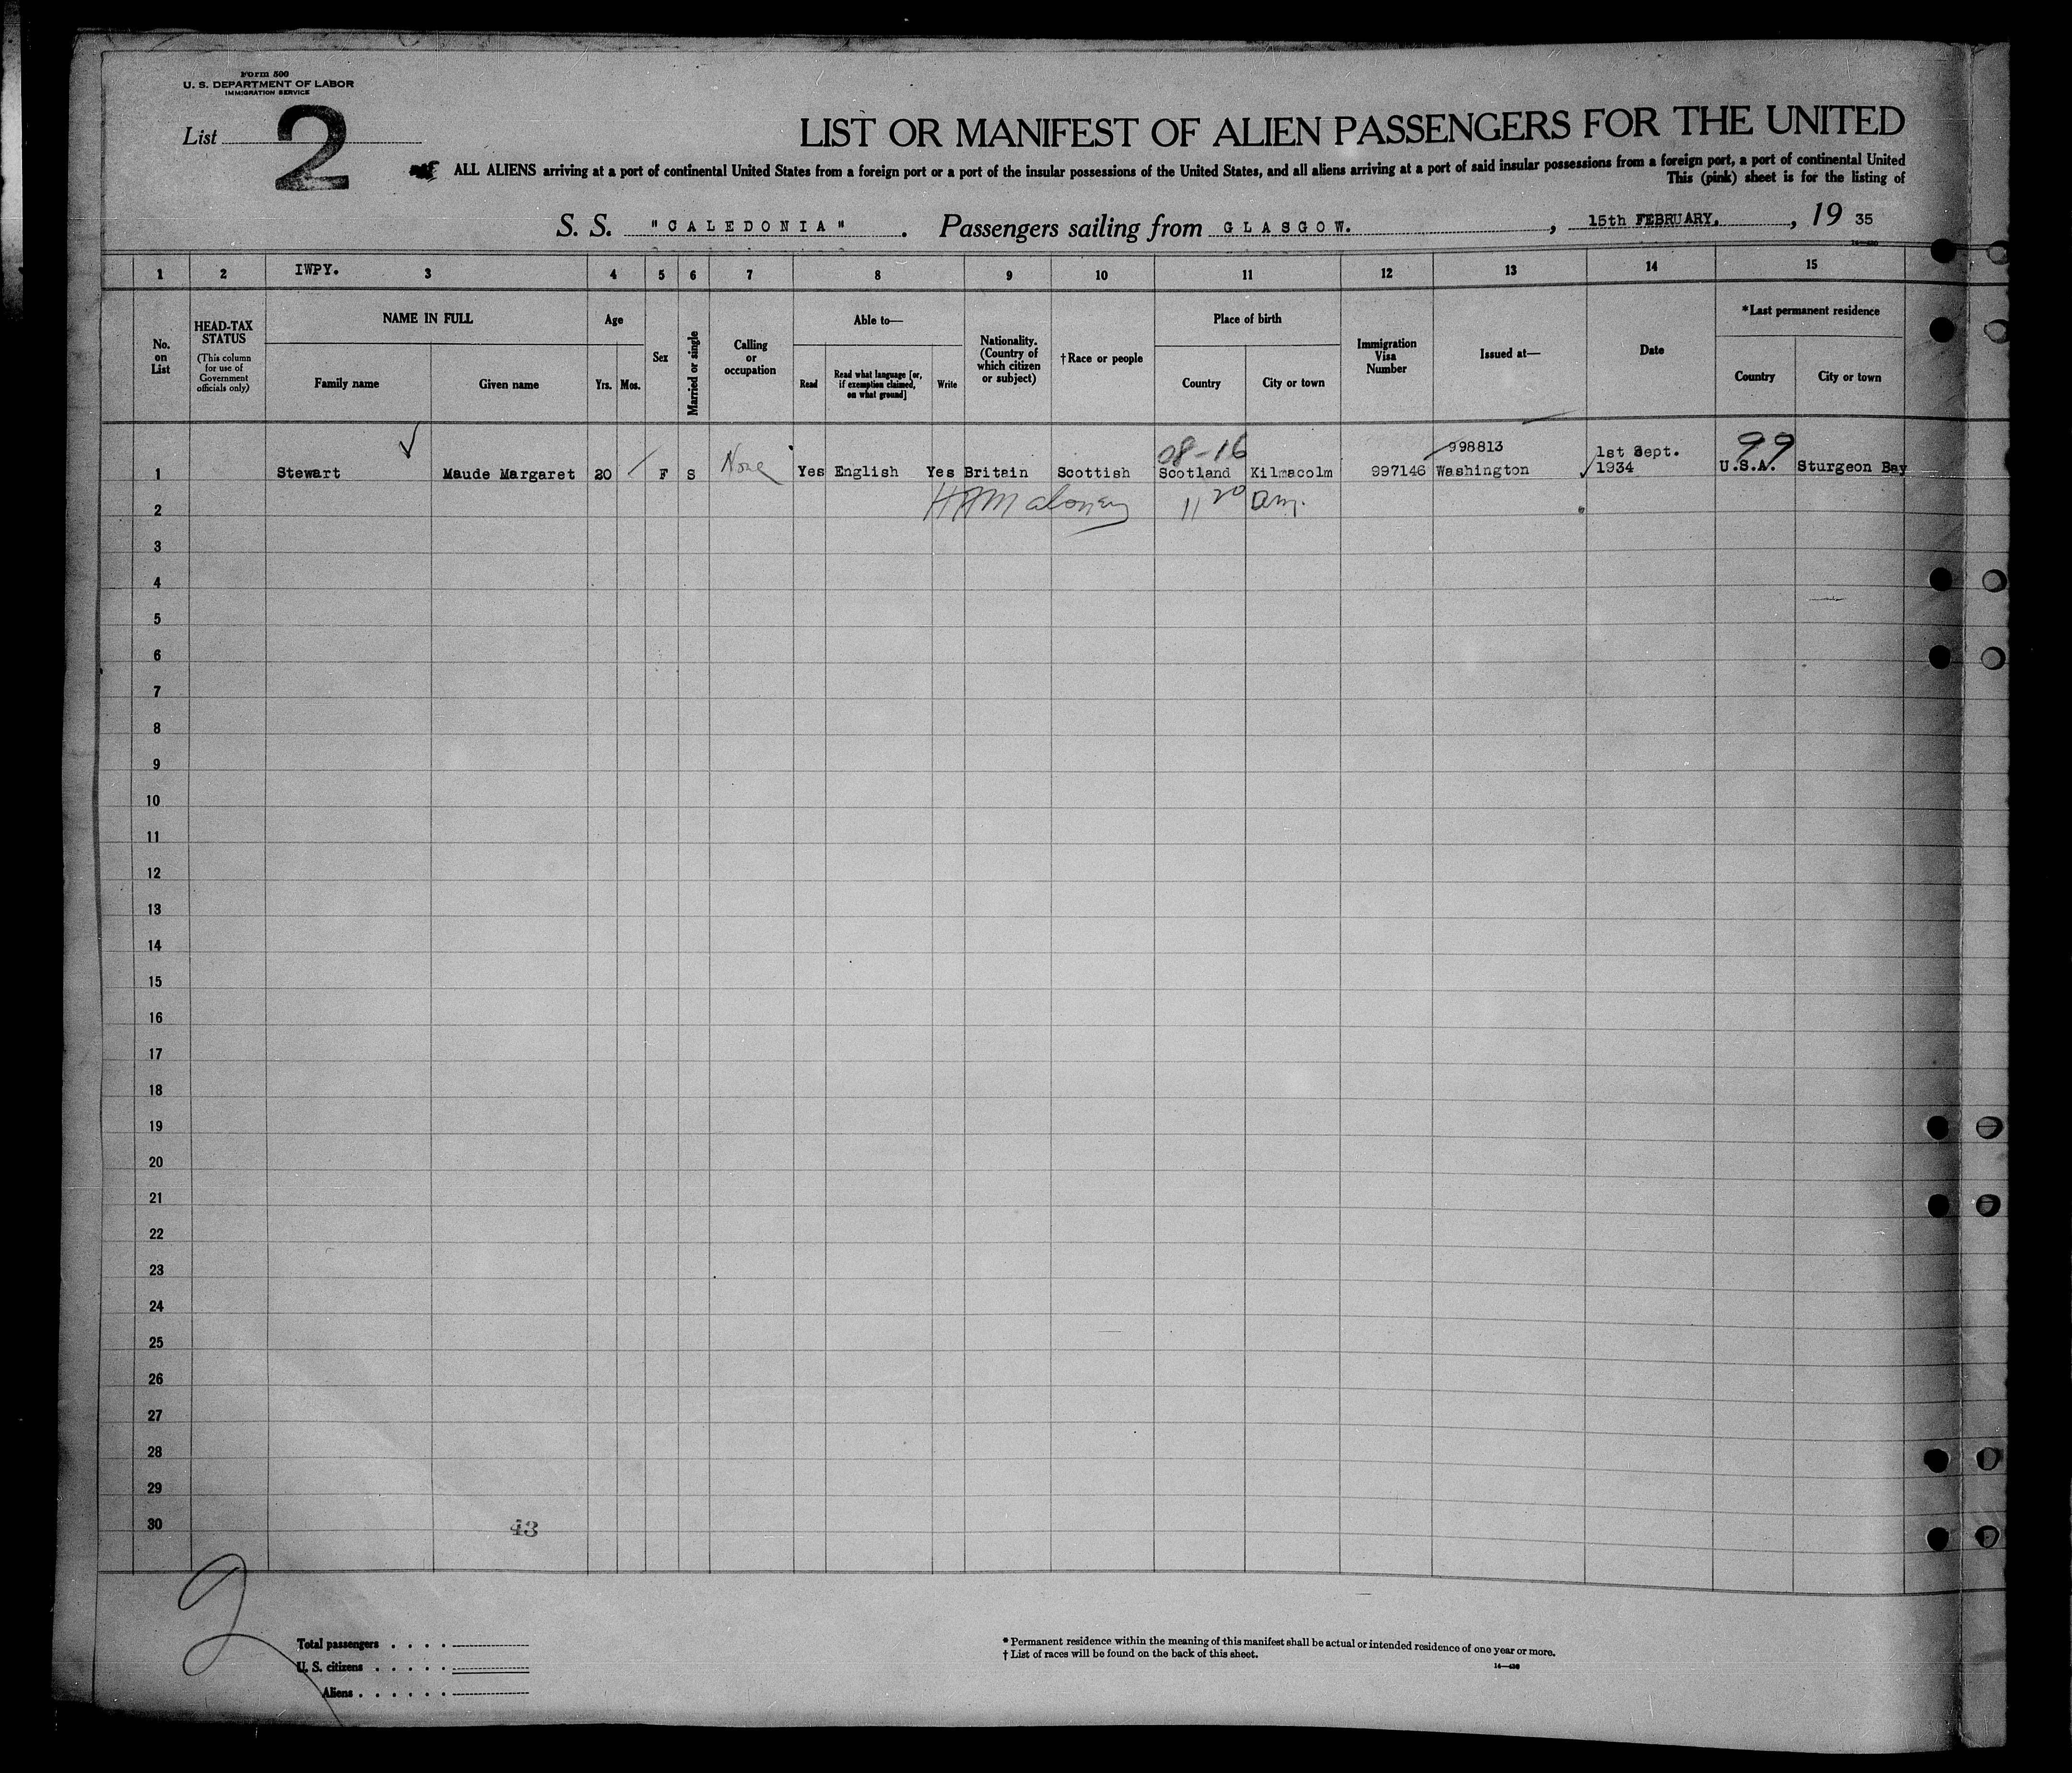 Form 500
U. S. DEPARTMENT OF LABOR
IMMIGRATION SERVICE
List 2
LIST OR MANIFEST OF ALIEN PASSENGERS FOR THE UNITED
ALL ALIENS arriving at a port of continental United States from a foreign port or a port of the insular possessions of the United States, and all aliens arriving at a port of said insular possessions from a foreign port, a port of continental United
This (pink) sheet is for the listing of
S. S. "CALEDONIA". Passengers sailing from GLASGOW., 15th FEBRUARY., 19 35
1 2 IWPY. 3 4 5 6 7 8 9 10 11 12 13 14 15
No. on List
HEAD-TAX STATUS
(This column for use of Government officials only)
NAME IN FULL
Family name
Given name
Age
Yrs.
Mos.
Sex
Married or single
Calling or occupation
Able to—
Read
Read what language [or, if exemption claimed, on what ground]
Write
Nationality. (Country of which citizen or subject)
†Race or people
Place of birth
Country
City or town
Immigration Visa Number
Issued at—
Date
*Last permanent residence
Country
City or town
08-16 998813 1st Sept. 99
1 Stewart Maude Margaret 20 F S None Yes English Yes Britain Scottish Scotland Kilmacolm 997146 Washington 1934 U.S.A. Sturgeon Bay
2 Maloney 11 20 am.
3
4
5
6
7
8
9
10
11
12
13
14
15
16
17
18
19
20
21
22
23
24
25
26
27
28
29
30
43
2
Total passengers
U. S. citizens
Aliens
* Permanent residence within the meaning of this manifest shall be actual or intended residence of one year or more.
† List of races will be found on the back of this sheet.